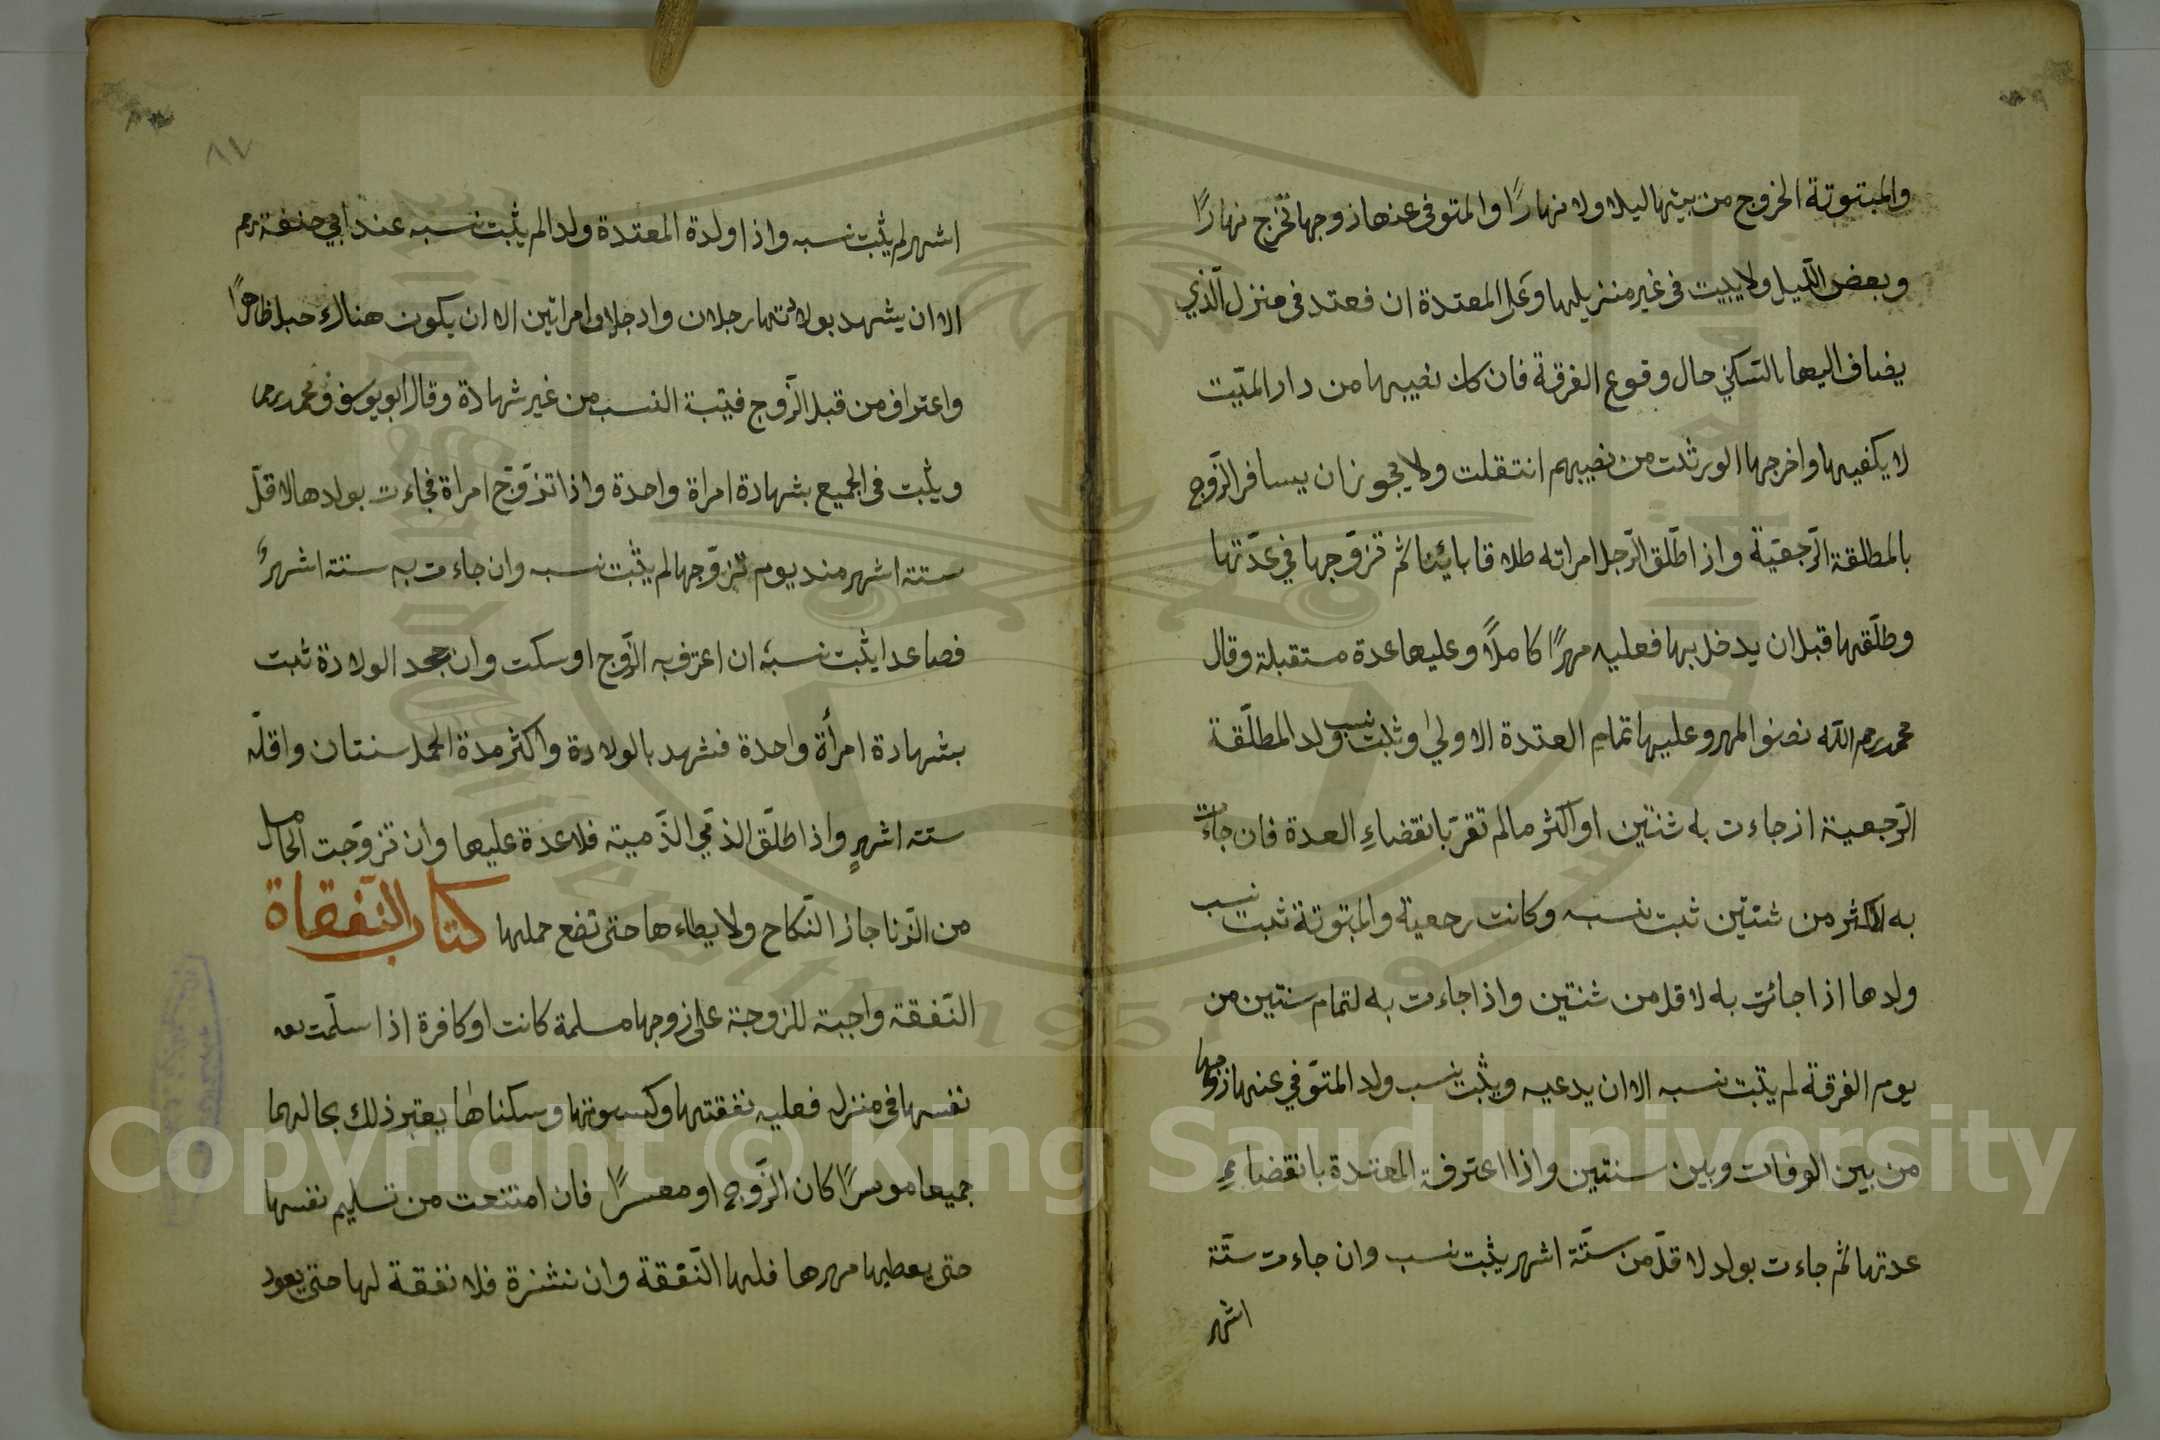 والمبتوتة الخروج من بيتها ليلا ولا نهارًا والمتوفى عنها زوجها تخرج نهارًا
وبعض الّليل ولا يبيت فى غير منزيلها وعلى المعتدة ان فعتد فى منزل الّذي
يضاف اليها بالسّكني حال وقوع الفرقة فان كان نصيبها من دار الميّت
لا يكفيها واخرجها الورثت من نصيبهم انتقلت ولا يجوز ان يسافر الزّوج
بالمطلقة الرّجعيّة واذا طلّق الرّجل امراته طلاقا بائينا ثم تزوّجها في عدّتها
وطلّقها قبل ان يدخل بها فعليه مهرًا كاملًا وعليها عدة مستقبلة وقال
محمد رحم الله نصف المهر وعليها تمام العتدة الاولي وثبت نسب ولد المطلّقة
الرّجعية اذ جاءت به شنتين او اكثر مالم تقرّ بانقضاءِ العدة فان جاءت
به لاكثر من شنتين ثبت نسبه وكانت رجعية والمبتوتة ثبت نسب
ولدها اذا جائت به لاقل من شنتين واذا جاءت به لتمام سنتين من
يوم الفرقة لم يثبت نسبه الا ان يدعيه ويثبت نسب ولد المتوّفي عنها زوجها
من بين الوفات وبين سنتين واذا اعترفة المعتدة بانقضاء
عدتها ثم جاءت بولد لاقلّ من ستّة اشهر يثبت نسب وان جاءت ستّة
اشهر
٨٧
اشهر لم يثبت نسبه واذا ولدة المعتدة ولدا لم يثبت نسبه عند ابي حنفة رحم
الا ان يشهد بولادتها رجلان وادجلا وامراتين الا ان يكون هناك حبل ظاهرًا
واعتراف من قبل الزّوج فيثبة النسب من غير شهادة وقال ابو يوسف ومحمد رحمها
ويثبت فى الجميع بشهادة امراة واحدة واذا تزوّج امراة فجاءت بولدها لاقلّ
ستته اشهر منذ يوم تزوّجها لم يثبت نسبه وان جاءت به ستته اشهرً
فصاعدا يثبت نسبه ان اعترف به الزّوج او سكت وان جحد الولادة ثبت
بشهادة امرأة واحدة فشهد بالولادة واكثر مدة الحمل سنتان واقلّه
ستته اشهرٍ واذا طلّق الذمّي الذّمية فلا عدة عليها وان تزوّجت الحامل
من الزّنا جاز النّكاح ولا يطاءها حتى تضع حملها كتاب النّفقاة
النّفقة واجبة للزوجة على زوجها مسلمة كانت او كافرة اذا سلّمت
نفسها فى منزله فعليه نفقتها وكسوتها وسكناها يعتبر ذلك بحالهما
جميعا موسرًا كان الزّوج او معسرًا فان امتنعت من تسليم نفسها
حتى يعطيها مهرها فلها النّفقة وان نشزة فلا نفقة لها حتى يعود
Copyright © King Saud University